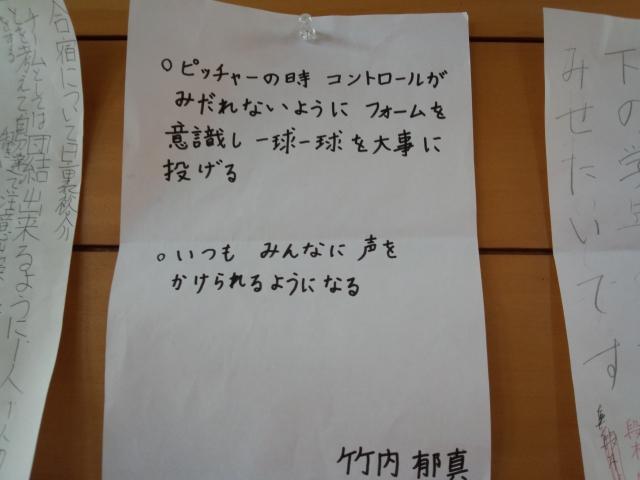 ○ピッチャーの時 コントロールが
みだれないように フォームを
意識し 一球一球を大事に
投げる
○いつも みんなに 声を
かけられるようになる
竹内 郁真
合宿について
私としては団結出来るように一人一人の
下の学年
みせたいです